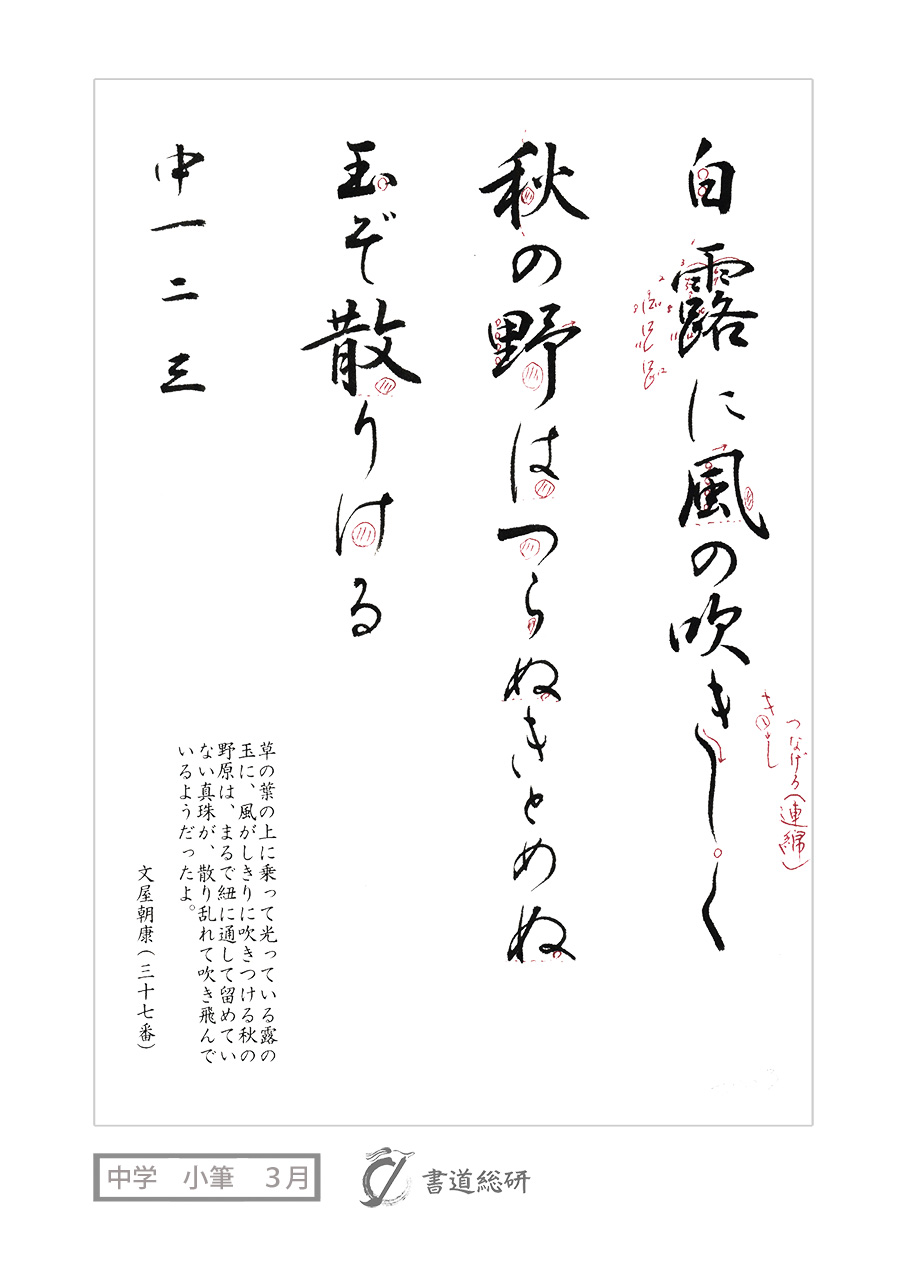 白露に風の吹きしく
秋の野はつらぬきとめぬ
玉ぞ散りける
中一二三
きし
つなげる(連綿)
草の葉の上に乗って光っている露の
玉に、風がしきりに吹きつける秋の
野原は、まるで紐に通して留めてい
ない真珠が、散り乱れて吹き飛んで
いるようだったよ。
文屋朝康(三十七番)
中学 小筆 3月
書道総研